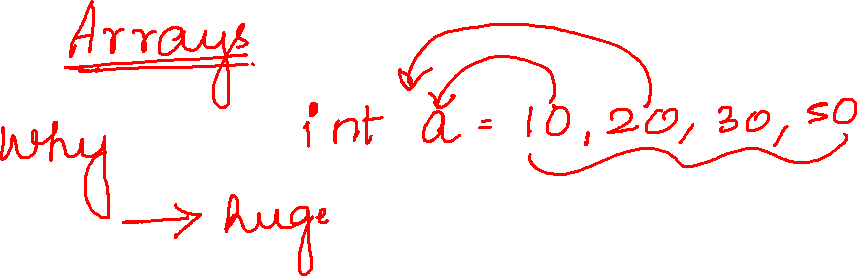 Arrays
Why
int a = 10, 20, 30, 50
→ huge